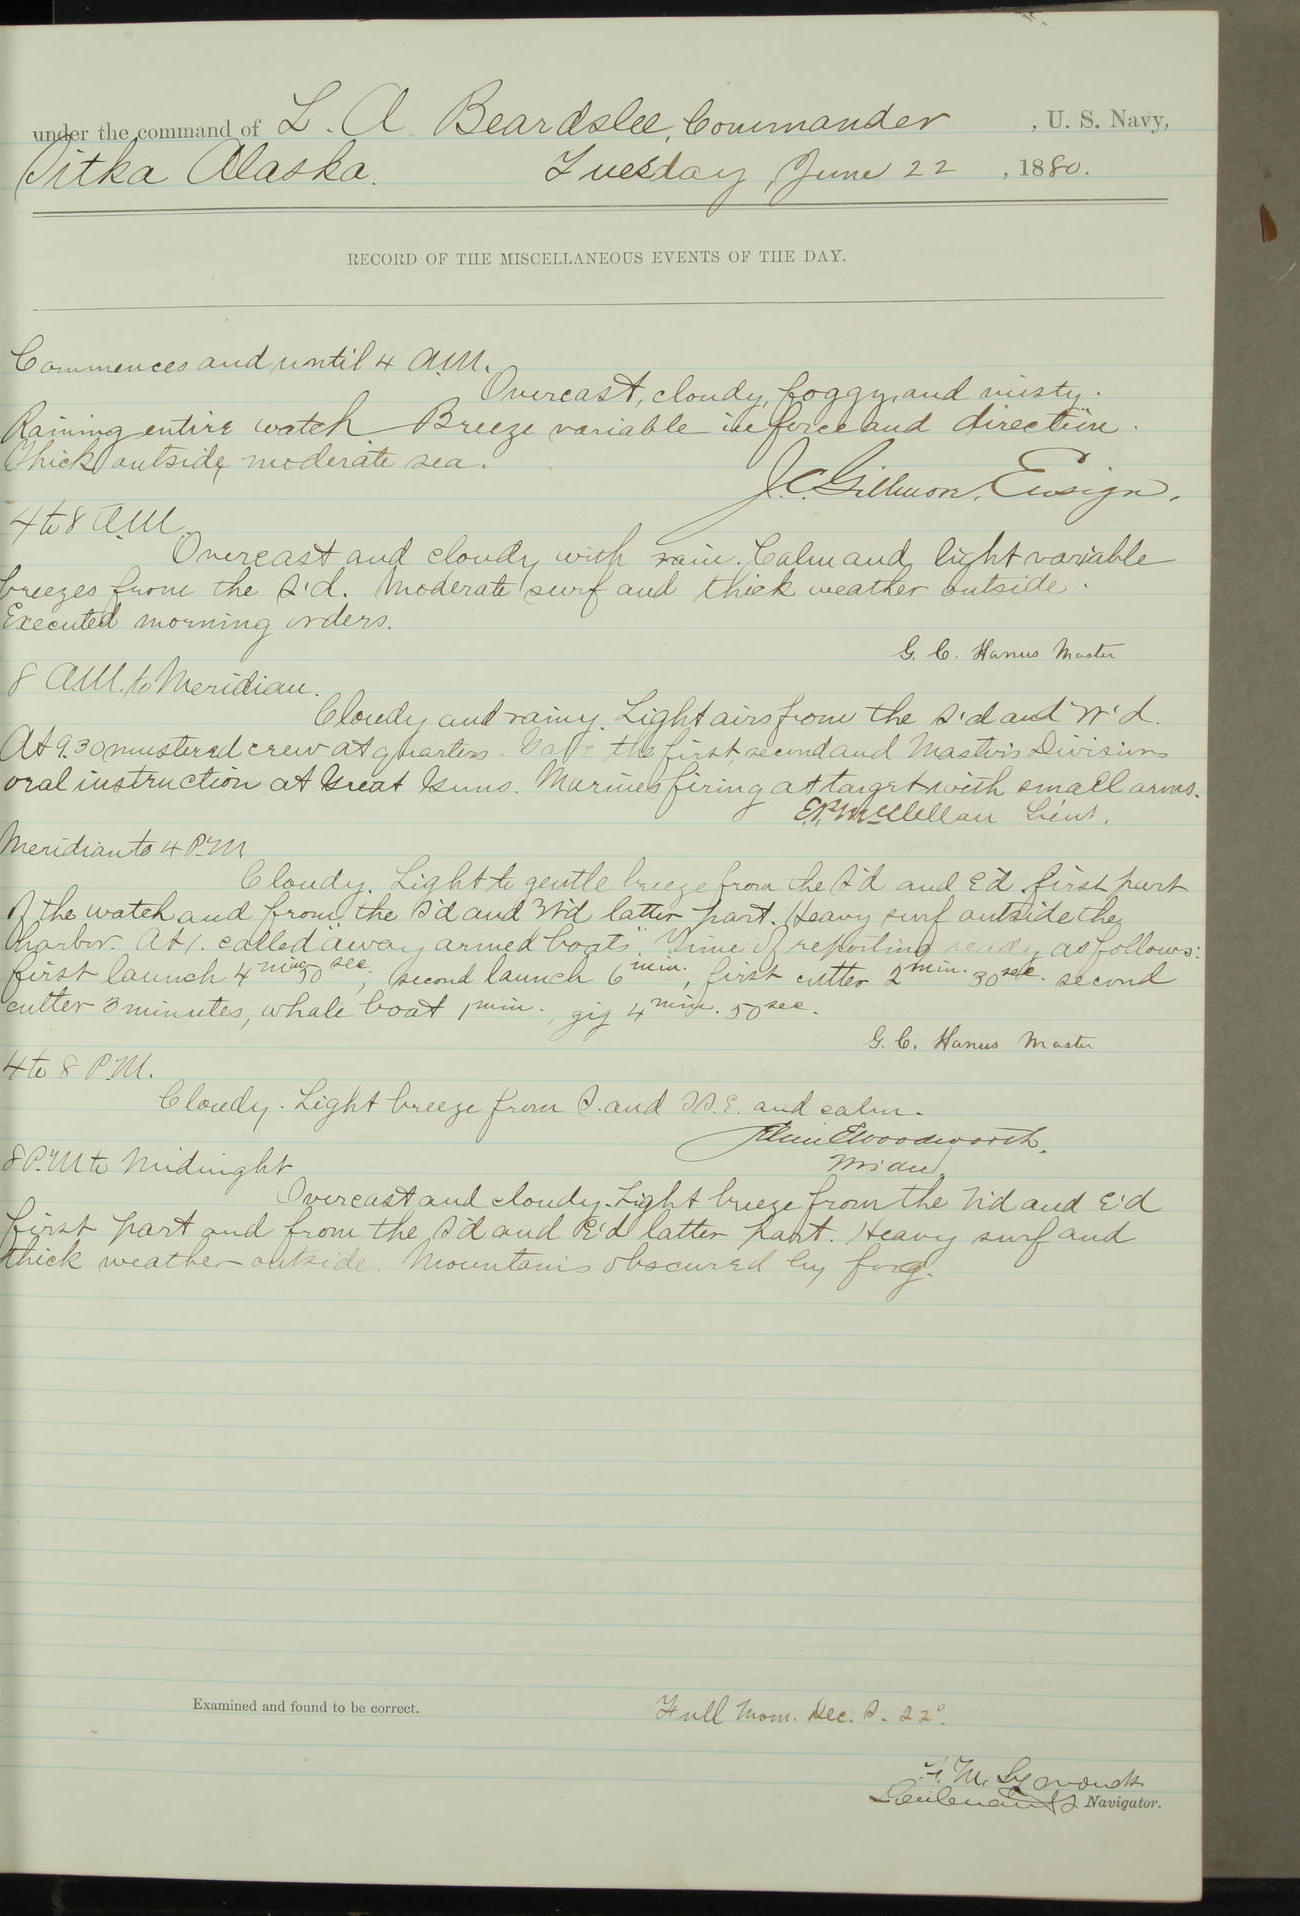 under the command of L. A. Beardslee, Commander , U. S. Navy,
Sitka Alaska. Tuesday, June 22 , 1880.
RECORD OF THE MISCELLANEOUS EVENTS OF THE DAY.
Commences and until 4 A.M.
Overcast, cloudy, foggy, and misty.
Raining entire watch. Breeze variable in force and direction.
Thick outside, moderate sea.
J. C. Gillmore, Ensign.
4 to 8 A.M.
Overcast and cloudy with rain. Calm and light variable
breezes from the S'd. Moderate surf and thick weather outside.
Executed morning orders.
G. C. Hanus Master
8 A.M. to Meridian.
Cloudy and rainy. Light airs from the S'd and W'd.
At 9.30 mustered crew at quarters. Gave the first, second and Master's Divisions
oral instruction at Great Guns. Marines firing at target with small arms.
E. P. McClellan Lieut.
Meridian to 4 P.M.
Cloudy. Light to gentle breeze from the S'd and E'd first part
of the watch and from the S'd and W'd latter part. Heavy surf outside the
harbor. At 1. called "away armed boats". Time of reporting ready as follows:
first launch 4 min 30 sec, second launch 6 min., first cutter 2 min. 30 sec. second
cutter 3 minutes, whale boat 1 min., gig 4 min. 50 sec.
G. C. Hanus Master
4 to 8 P.M.
Cloudy. Light breeze from S. and S.S.E. and calm.
E. Woodworth.
Mid'n
8 P.M. to Midnight
Overcast and cloudy. Light breeze from the N'd and E'd
first part and from the S'd and E'd latter part. Heavy surf and
thick weather outside. Mountains obscured by fog.
Examined and found to be correct. Full Moon. Dec. S. 22°.
F. M. Symonds
Lieutenant & Navigator.